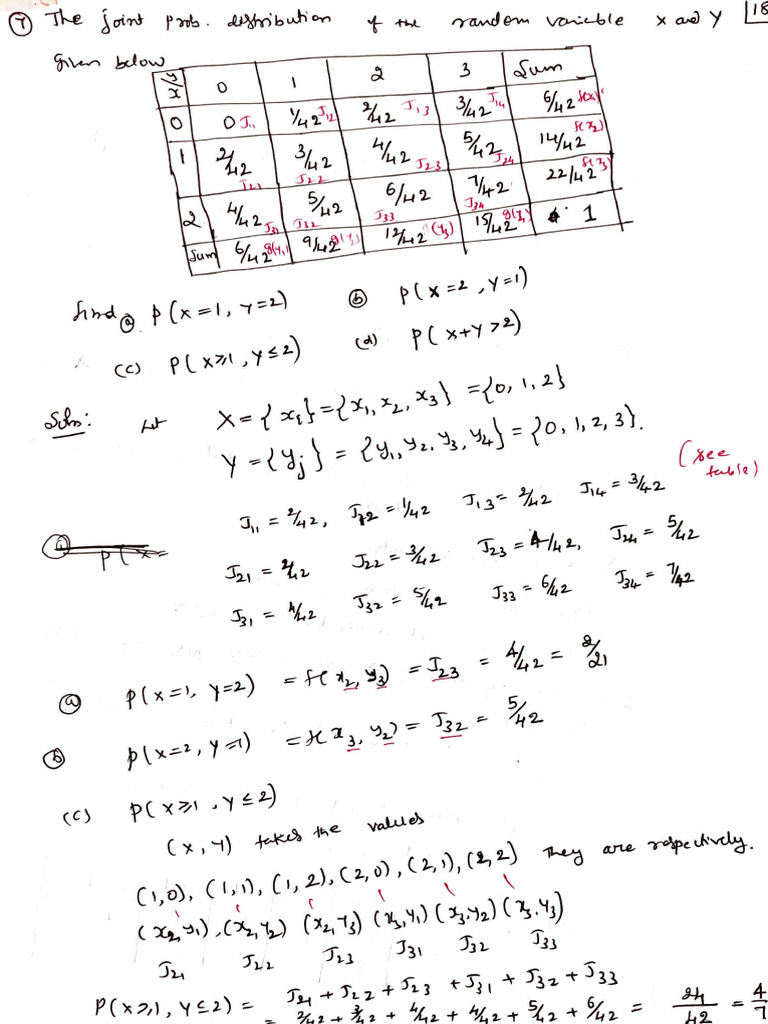 ⑦ The joint prob. distribution of the random variable X and Y 18
given below
y/x 0 1 2 3 Sum
0 0 J₁₁ 1/42 J₁₂ 2/42 J₁₃ 3/42 J₁₄ 6/42 f(x₁)
1 2/42 J₂₁ 3/42 J₂₂ 4/42 J₂₃ 5/42 J₂₄ 14/42 f(x₂)
2 4/42 J₃₁ 5/42 J₃₂ 6/42 J₃₃ 7/42 J₃₄ 22/42 f(x₃)
Sum 6/42 g(y₁) 9/42 g(y₂) 12/42 (y₃) 15/42 g(y₄) 1
find ⓐ P(X=1, Y=2) ⓑ P(X=2, Y=1)
(c) P(X≥1, Y≤2) (d) P(X+Y>2)
Soln: Let X = {xᵢ} = {x₁, x₂, x₃} = {0, 1, 2}
Y = {yⱼ} = {y₁, y₂, y₃, y₄} = {0, 1, 2, 3}.
(see table)
J₁₁ = 2/42, J₁₂ = 1/42 J₁₃ = 2/42 J₁₄ = 3/42
P(X=
J₂₁ = 2/42 J₂₂ = 3/42 J₂₃ = 4/42, J₂₄ = 5/42
J₃₁ = 4/42 J₃₂ = 5/42 J₃₃ = 6/42 J₃₄ = 7/42
ⓐ P(X=1, Y=2) = f(x₂, y₃) = J₂₃ = 4/42 = 2/21
ⓑ P(X=2, Y=1) = f(x₃, y₂) = J₃₂ = 5/42
(c) P(X≥1, Y≤2)
(X, Y) takes the values
(1,0), (1,1), (1,2), (2,0), (2,1), (2,2) They are respectively.
(x₂,y₁), (x₂,y₂) (x₂,y₃) (x₃,y₁) (x₃,y₂) (x₃,y₃)
J₂₁ J₂₂ J₂₃ J₃₁ J₃₂ J₃₃
P(X≥1, Y≤2) = J₂₁ + J₂₂ + J₂₃ + J₃₁ + J₃₂ + J₃₃
= 2/42 + 3/42 + 4/42 + 4/42 + 5/42 + 6/42 = 24/42 = 4/7